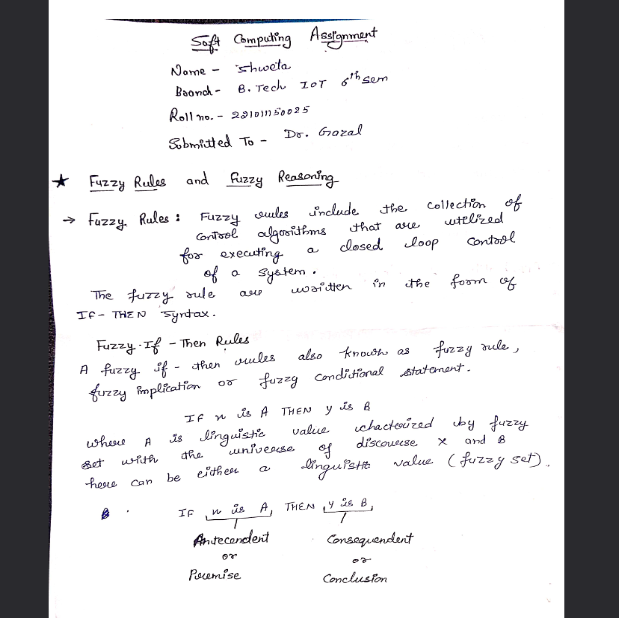 Soft Computing Assignment
Name - Shweta
Branch - B. Tech IOT 6th sem
Roll no. - 22101150025
Submitted To - Dr. Gozal
★ Fuzzy Rules and Fuzzy Reasoning
→ Fuzzy Rules : Fuzzy rules include the collection of
control algorithms that are utilized
for executing a closed loop control
of a system.
The fuzzy rule are written in the form of
IF - THEN Syntax.
Fuzzy If - Then Rules
A fuzzy if - then rules also known as fuzzy rule,
fuzzy implication or fuzzy conditional statement.
IF x is A THEN y is B
where A is linguistic value charterized by fuzzy
set with the universe of discourse X and B
here can be either a linguistic value (fuzzy set).
IF x is A, THEN y is B,
Antecendent Consequendent
or or
Premise Conclusion